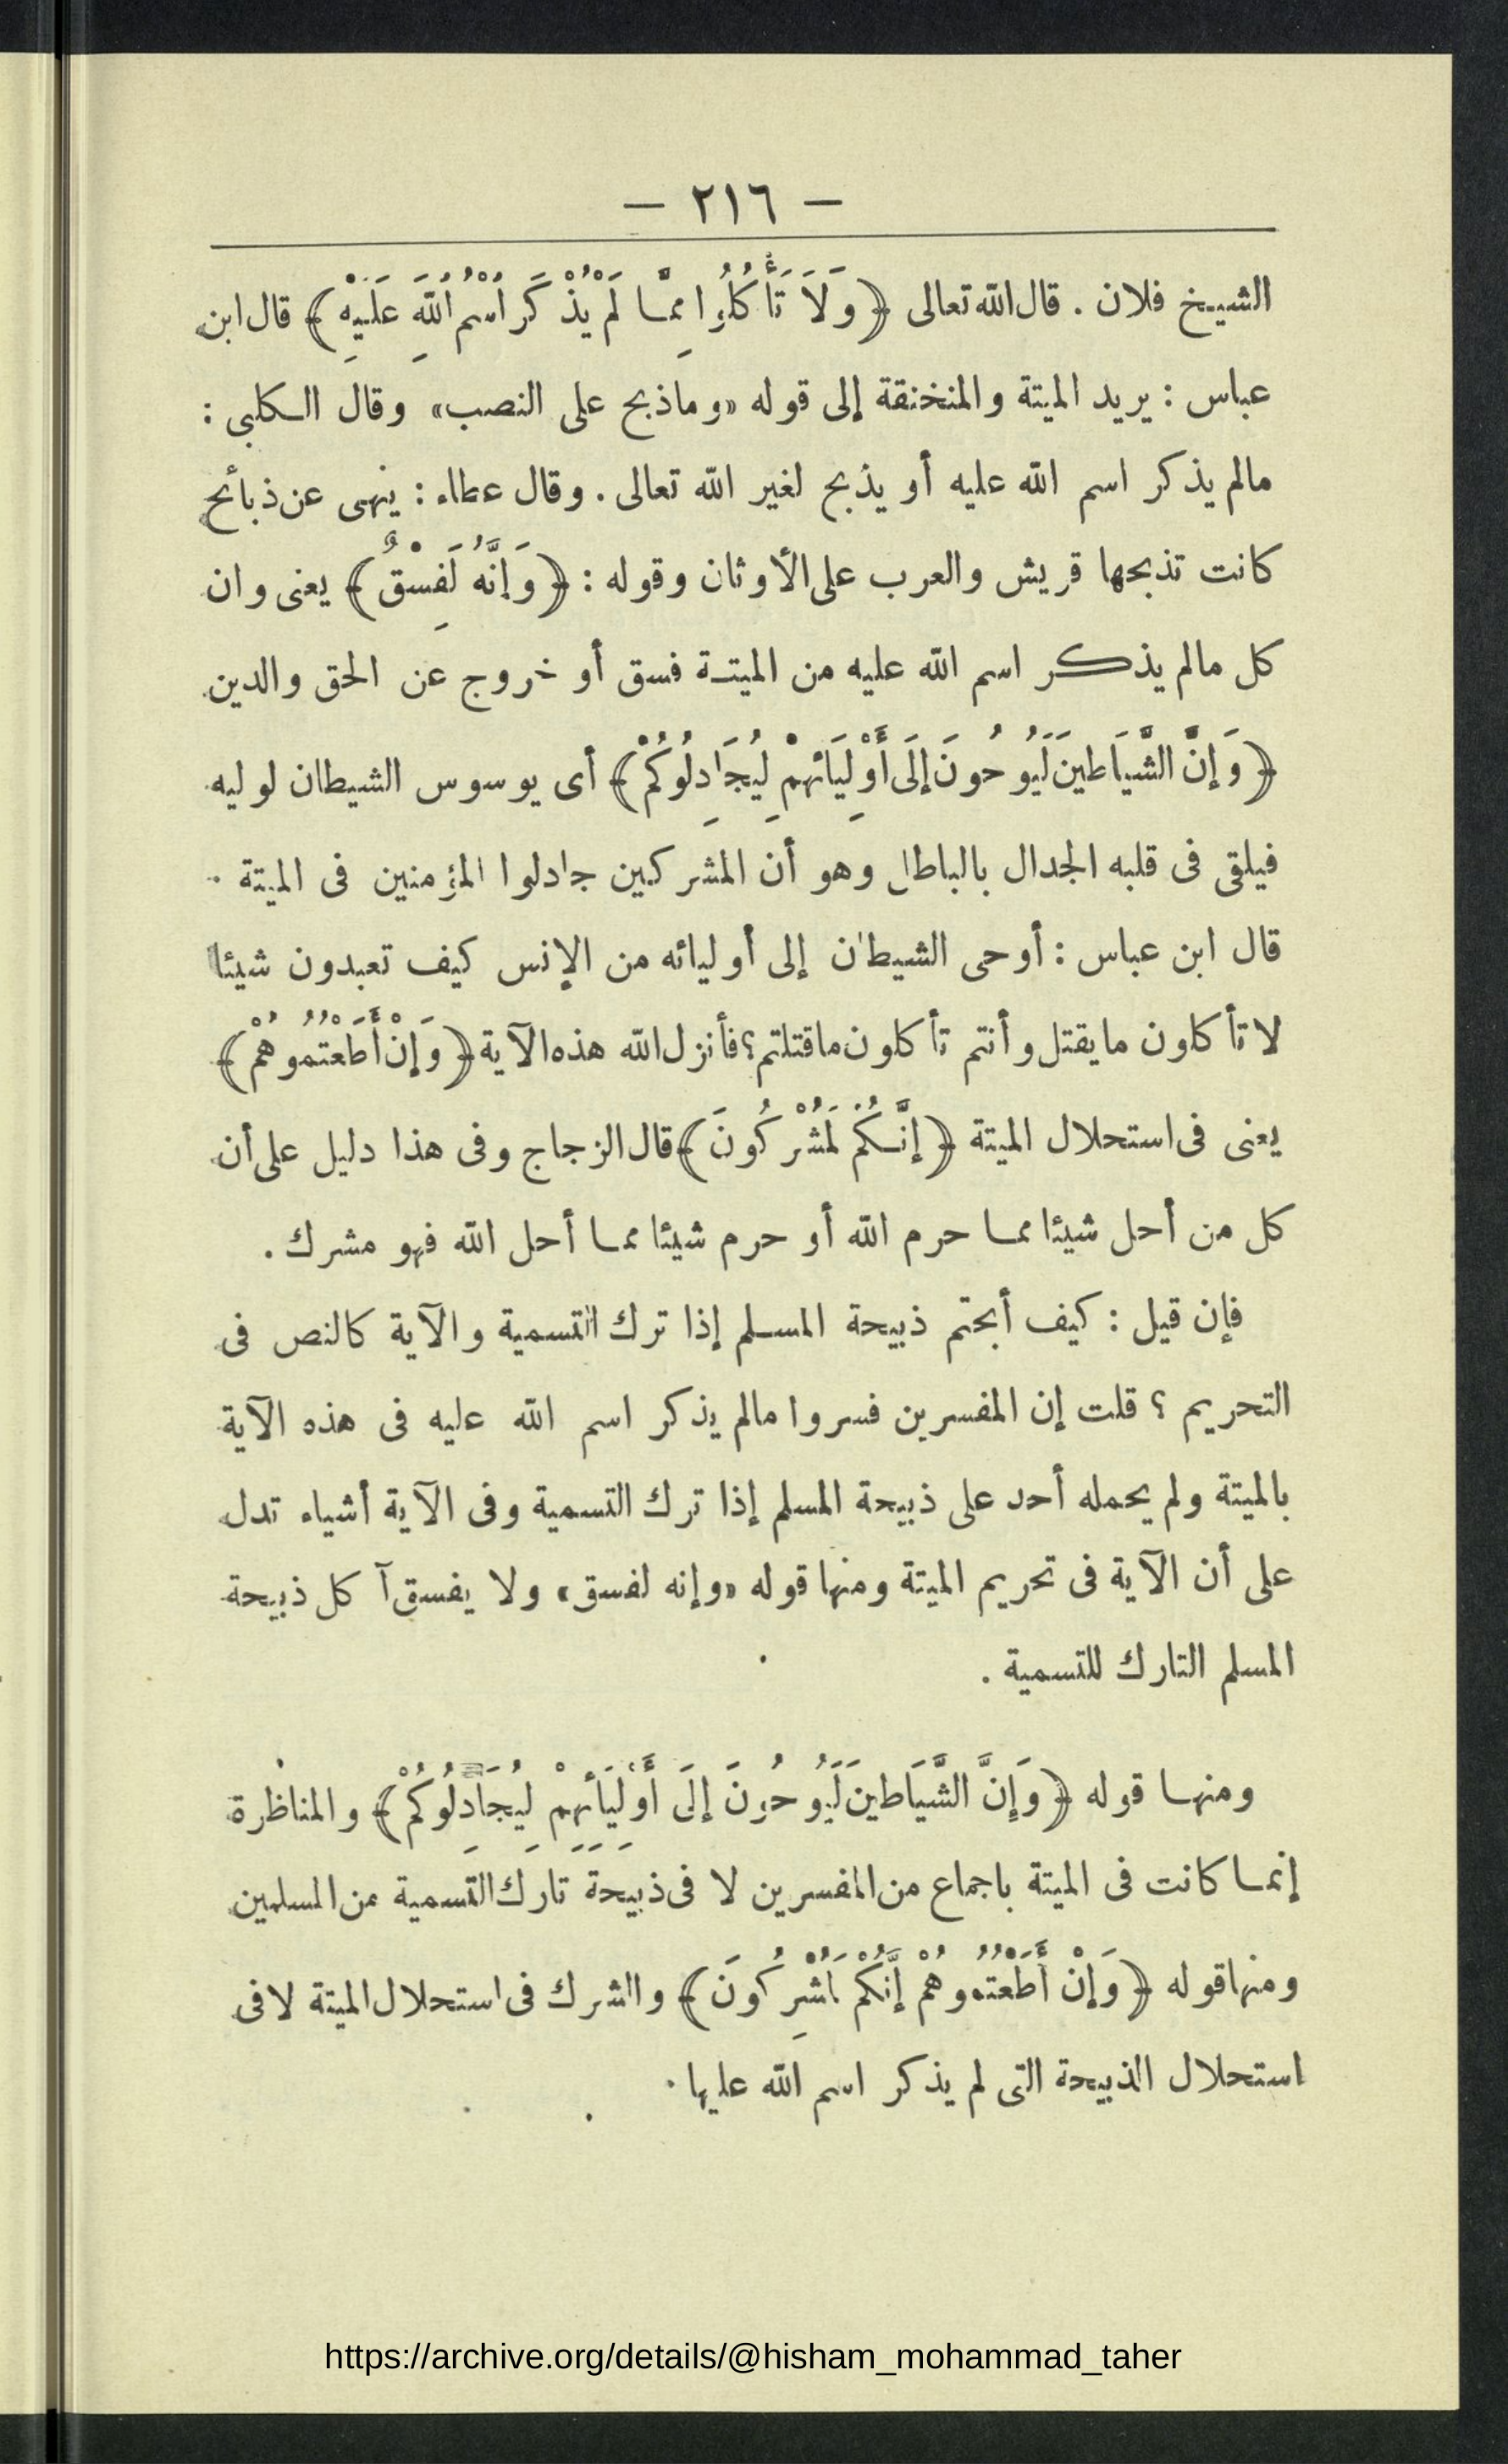 — ٢١٦ —
الشيخ فلان . قال الله تعالى ﴿وَلَا تَأْكُلُوا مِمَّا لَمْ يُذْكَرِ اسْمُ اللَّهِ عَلَيْهِ﴾ قال ابن
عباس : يريد الميتة والمنخنقة إلى قوله «وماذبح على النصب» وقال الكلبى :
مالم يذكر اسم الله عليه أو يذبح لغير الله تعالى . وقال عطاء : ينهى عن ذبائح
كانت تذبحها قريش والعرب على الأوثان وقوله : ﴿وَإِنَّهُ لَفِسْقٌ﴾ يعنى وان
كل مالم يذكر اسم الله عليه من الميتة فسق أو خروج عن الحق والدين
﴿وَإِنَّ الشَّيَاطِينَ لَيُوحُونَ إِلَى أَوْلِيَائِهِمْ لِيُجَادِلُوكُمْ﴾ أى يوسوس الشيطان لوليه
فيلقى فى قلبه الجدال بالباطل وهو أن المشركين جادلوا المؤمنين فى الميتة .
قال ابن عباس : أوحى الشيطان إلى أوليائه من الإنس كيف تعبدون شيئا
لا تأكلون مايقتل وأنتم تأكلون ماقتلتم؟ فأنزل الله هذه الآية ﴿وَإِنْ أَطَعْتُمُوهُمْ﴾
يعنى فى استحلال الميتة ﴿إِنَّكُمْ لَمُشْرِكُونَ﴾ قال الزجاج وفى هذا دليل على أن
كل من أحل شيئا مما حرم الله أو حرم شيئا مما أحل الله فهو مشرك .
فإن قيل : كيف أبحتم ذبيحة المسلم إذا ترك التسمية والآية كالنص فى
التحريم ؟ قلت إن المفسرين فسروا مالم يذكر اسم الله عليه فى هذه الآية
بالميتة ولم يحمله أحد على ذبيحة المسلم إذا ترك التسمية وفى الآية أشياء تدل
على أن الآية فى تحريم الميتة ومنها قوله «وإنه لفسق» ولا يفسق آكل ذبيحة
المسلم التارك للتسمية .
ومنها قوله ﴿وَإِنَّ الشَّيَاطِينَ لَيُوحُونَ إِلَى أَوْلِيَائِهِمْ لِيُجَادِلُوكُمْ﴾ والمناظرة
إنما كانت فى الميتة باجماع من المفسرين لا فى ذبيحة تارك التسمية من المسلمين
ومنها قوله ﴿وَإِنْ أَطَعْتُمُوهُمْ إِنَّكُمْ لَمُشْرِكُونَ﴾ والشرك فى استحلال الميتة لا فى
استحلال الذبيحة التى لم يذكر اسم الله عليها .
https://archive.org/details/@hisham_mohammad_taher